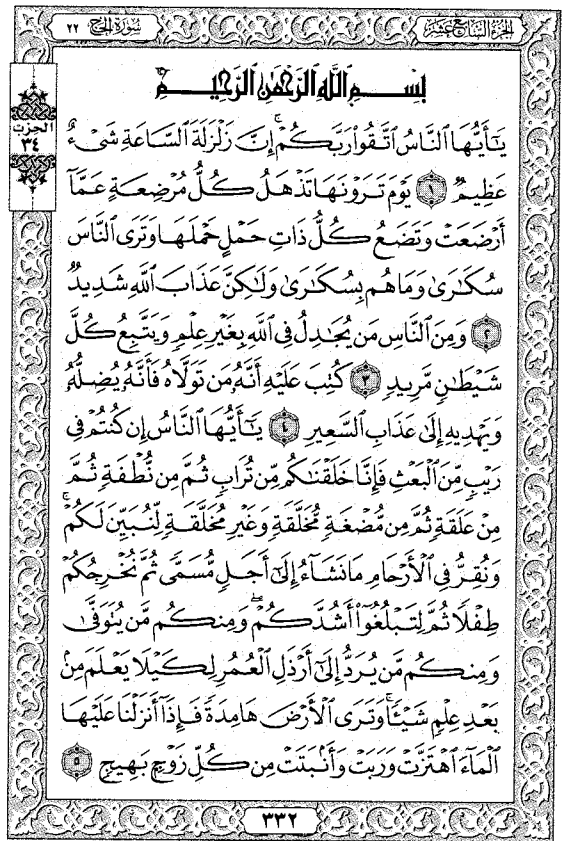 الجزء السابع عشر
سورة الحج ٢٢
بِسْمِ ٱللَّهِ ٱلرَّحْمَٰنِ ٱلرَّحِيمِ
الحزب
٣٤
يَٰٓأَيُّهَا ٱلنَّاسُ ٱتَّقُوا۟ رَبَّكُمْ ۚ إِنَّ زَلْزَلَةَ ٱلسَّاعَةِ شَىْءٌ
عَظِيمٌ ١ يَوْمَ تَرَوْنَهَا تَذْهَلُ كُلُّ مُرْضِعَةٍ عَمَّآ
أَرْضَعَتْ وَتَضَعُ كُلُّ ذَاتِ حَمْلٍ حَمْلَهَا وَتَرَى ٱلنَّاسَ
سُكَٰرَىٰ وَمَا هُم بِسُكَٰرَىٰ وَلَٰكِنَّ عَذَابَ ٱللَّهِ شَدِيدٌ
٢ وَمِنَ ٱلنَّاسِ مَن يُجَٰدِلُ فِى ٱللَّهِ بِغَيْرِ عِلْمٍ وَيَتَّبِعُ كُلَّ
شَيْطَٰنٍ مَّرِيدٍ ٣ كُتِبَ عَلَيْهِ أَنَّهُۥ مَن تَوَلَّاهُ فَأَنَّهُۥ يُضِلُّهُۥ
وَيَهْدِيهِ إِلَىٰ عَذَابِ ٱلسَّعِيرِ ٤ يَٰٓأَيُّهَا ٱلنَّاسُ إِن كُنتُمْ فِى
رَيْبٍ مِّنَ ٱلْبَعْثِ فَإِنَّا خَلَقْنَٰكُم مِّن تُرَابٍ ثُمَّ مِن نُّطْفَةٍ ثُمَّ
مِنْ عَلَقَةٍ ثُمَّ مِن مُّضْغَةٍ مُّخَلَّقَةٍ وَغَيْرِ مُخَلَّقَةٍ لِّنُبَيِّنَ لَكُمْ ۚ
وَنُقِرُّ فِى ٱلْأَرْحَامِ مَا نَشَآءُ إِلَىٰٓ أَجَلٍ مُّسَمًّى ثُمَّ نُخْرِجُكُمْ
طِفْلًا ثُمَّ لِتَبْلُغُوٓا۟ أَشُدَّكُمْ ۖ وَمِنكُم مَّن يُتَوَفَّىٰ
وَمِنكُم مَّن يُرَدُّ إِلَىٰٓ أَرْذَلِ ٱلْعُمُرِ لِكَيْلَا يَعْلَمَ مِنۢ
بَعْدِ عِلْمٍ شَيْـًٔا ۚ وَتَرَى ٱلْأَرْضَ هَامِدَةً فَإِذَآ أَنزَلْنَا عَلَيْهَا
ٱلْمَآءَ ٱهْتَزَّتْ وَرَبَتْ وَأَنۢبَتَتْ مِن كُلِّ زَوْجٍۭ بَهِيجٍ ٥
٣٣٢